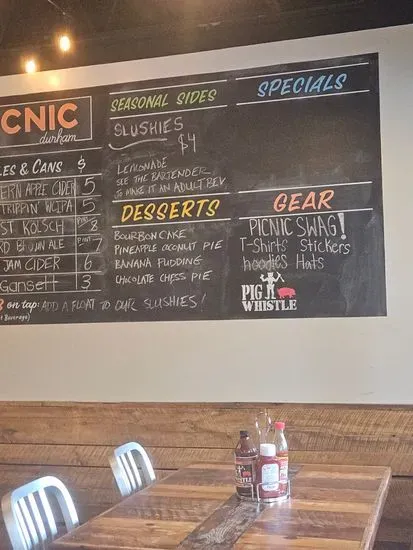 CNIC
durham
LES & CANS $
ERN APPLE CIDER 5
TRIPPIN' WCIPA 5
ST KÖLSCH PINT 8
RD BROWN ALE PINT 7
JAM CIDER 6
Gansett 3
on tap: ADD A FLOAT TO OUR SLUSHIES!
Beverage)
SEASONAL SIDES
SLUSHIES
$4
LEMONADE
SEE THE BARTENDER
TO MAKE IT AN ADULT BEV.
DESSERTS
BOURBON CAKE
PINEAPPLE COCONUT PIE
BANANA PUDDING
CHOCOLATE CHESS PIE
SPECIALS
GEAR
PICNIC SWAG!
T-Shirts Stickers
hoodies Hats
PIG
WHISTLE